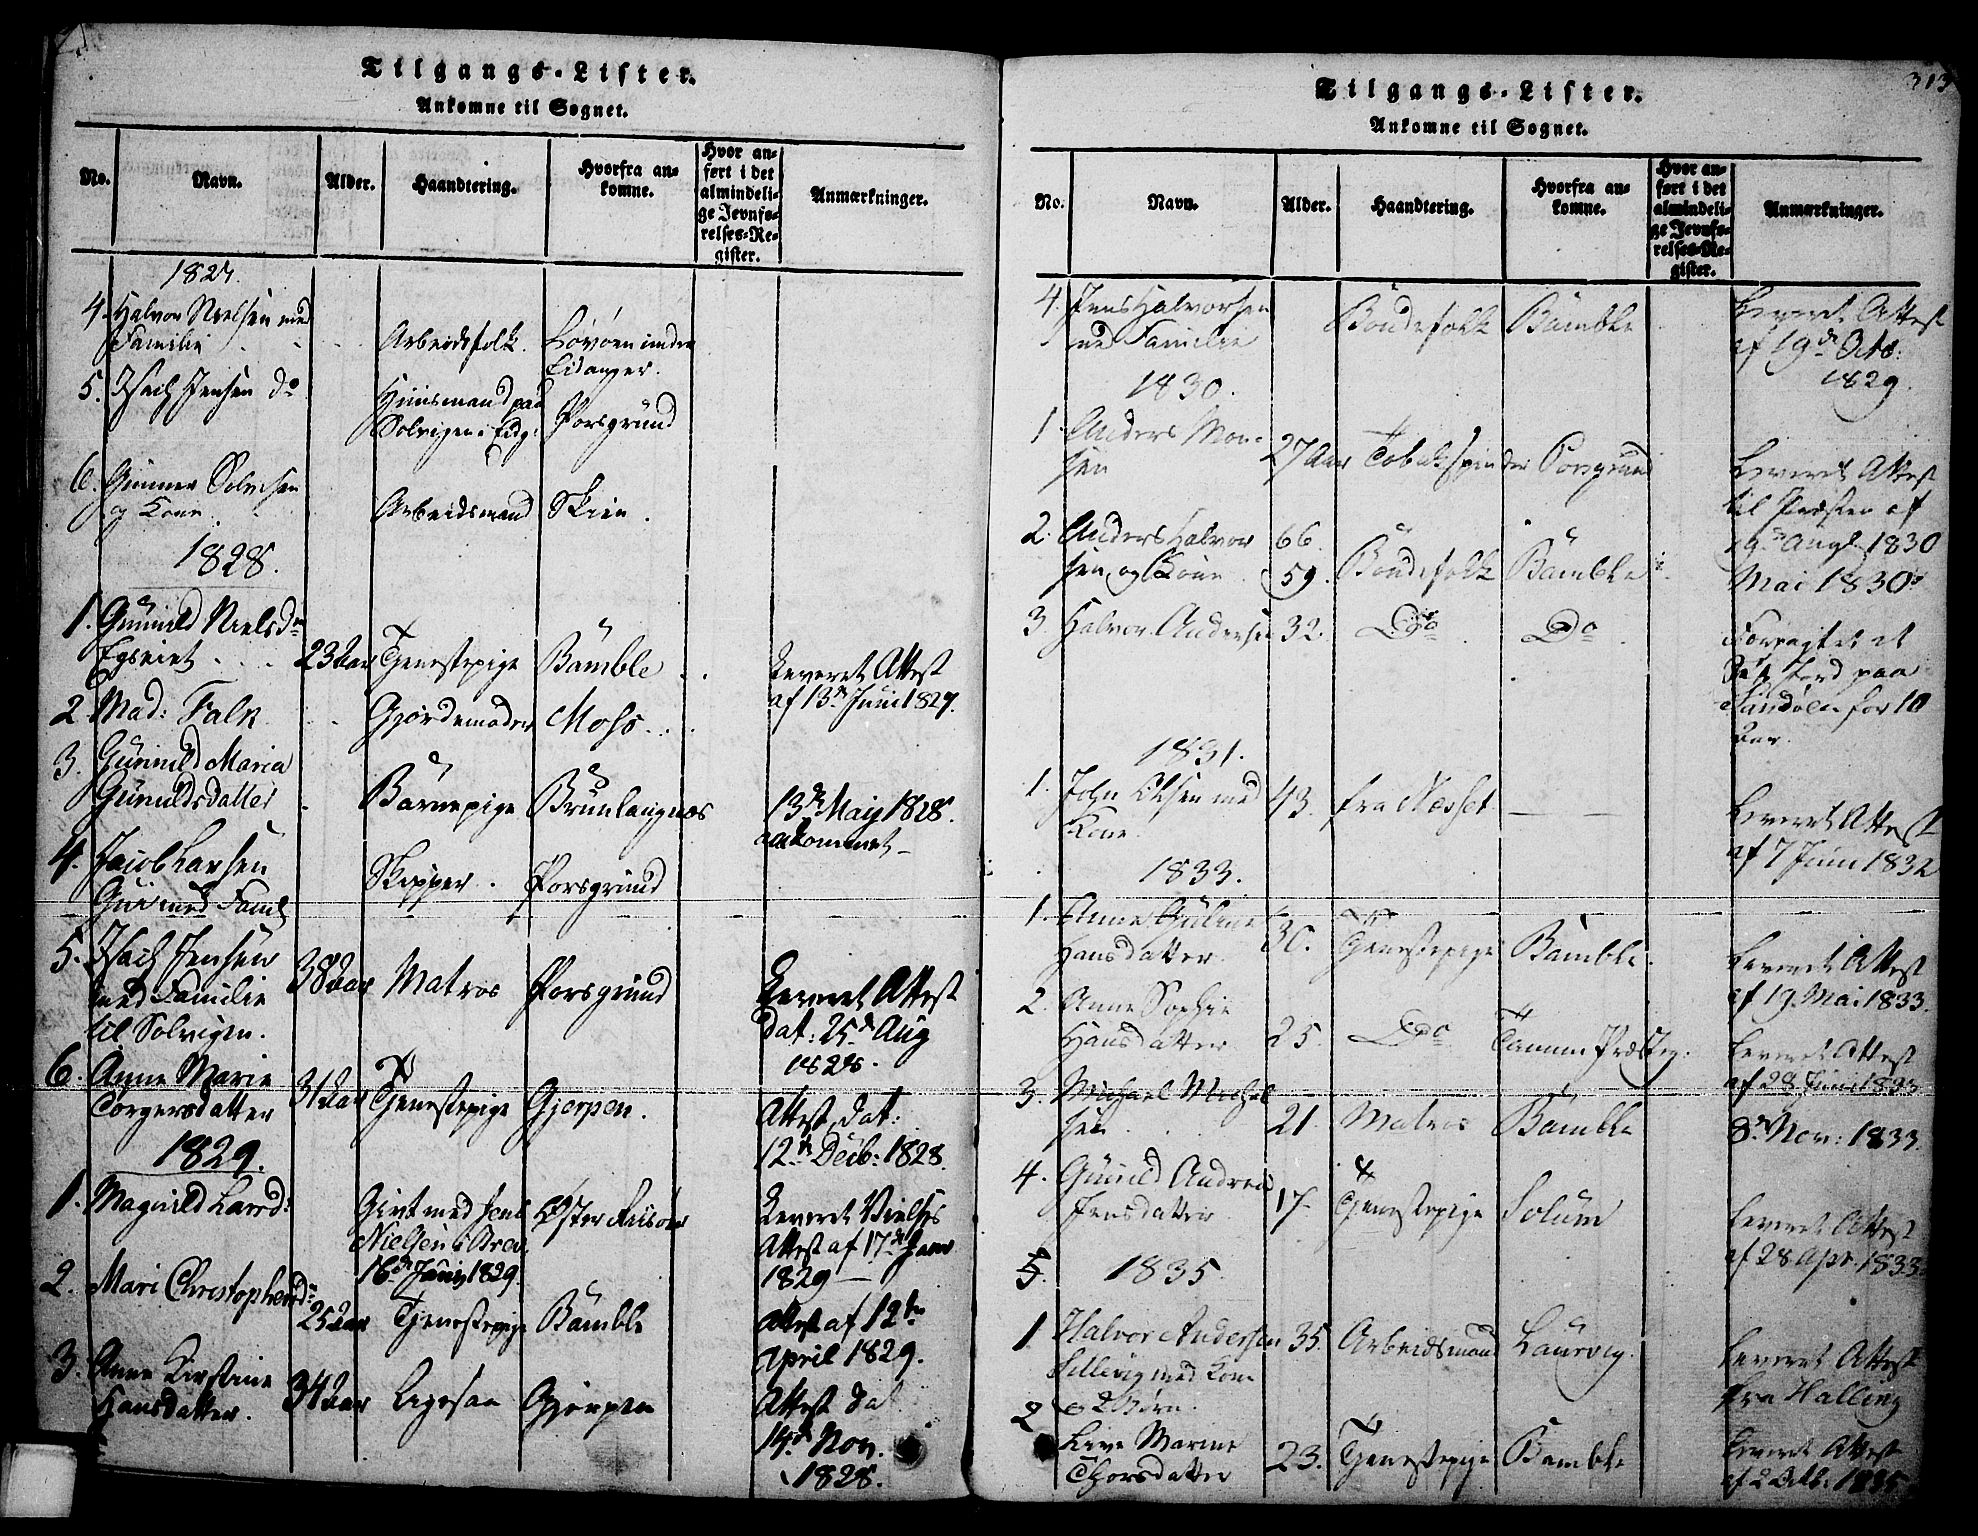 Tilgangs-Lister.
Ankomne til Sognet.
No.
Navn.
Alder.
Haandtering.
Hvorfra an-
komne.
Hvor an-
ført i det
almindeli-
ge Jevnfø-
relses-Re-
gister.
Anmærkninger.
1827.
4. Halvor Nielsen med
Familie
Arbeidsfolk. Løvøen indre
Eidanger.
5. Isach Jensen do
Huusmand paa
Solvigen i Eidg: Porsgrund
6. Gunner Solvesen
og Kone
Arbeidsmand Skien.
1828.
1. Gunnild Nielsdr
23 Aar Tjenestepige Bamble
Leveret Attest
af 13de Juni 1827.
2. Mad: Falk Gjordemoder Moss
3. Gunnild Maria
Gunuldsdatter
Barnepige Brunlaugnæs
13de May 1828.
ankommet
4. Jacob Larsen
med Faml
Skipper. Porsgrund
5. Isach Jensen
med Familie
til Solvigen.
38 Aar Matros Porsgrund
Leveret Attest
dat: 25de Aug
1828.
6. Anne Marie
Torgersdatter
31 Aar Tjenestepige Gjerpen.
Attest dat:
12te Decb: 1828.
1829.
1. Magnild Larsd:
Givt med Jens
Nielsen i Brev.
16de Juny 1829.
Øster Riisøer
Leveret Vielses
Attest af 17de Janr
1829
2. Mari Christophersdr
25 Aar Tjenestepige Bamble
Attest af 12te
April 1829.
3. Anne Kirstine
Hansdatter.
34 Aar Ligesaa Gjerpen
Attest da
14de Nov.
1828.
Tilgangs-Lister.
313
Ankomne til Sognet.
No.
Navn.
Alder.
Haandtering.
Hvorfra an-
komne.
Hvor an-
ført i det
almindeli-
ge Jevnfø-
relses-Re-
gister.
Anmærkninger.
4. Jens Halvorsen
med Familie
Bondefolk Bamble
Leveret Attest
af 19de Octo:
1829.
1830.
1. Anders Mon-
sen
27 Aar Tobakspinder Porsgrund
Leveret Attest
til Præsten af
1830
2. Anders Halvor
sen og Kone
66.
59. Bondefolk Bamble
Mai 1830
3. Halvor Andersen 32. Do Do
Forpagtet et
Jord paa
Sandøen for 10
Aar.
1831.
1. John Olsen med
Kone
43. fra Næsset
Leveret Attest
af 7 Juni 1832
1833.
1. Anne Guline
Hansdatter
30. Tjenestepige Bamble.
Leveret Attest
af 19. Mai 1833.
2. Anne Sophie
Hansdatter
25. Do Tanum Præsteg:
Leveret Attest
af 28 Juni 1833
3. Michael Michel
sen
21. Matros Bamble
8de Nov: 1833.
4. Gunild Andrea
Jensdatter
17 Tjenestepige Solum
Leveret Attest
af 28 Apr. 1833
5.
1835.
1 Halvor Andersen
Sillevig med Kone
& 2 Børn.
35. Arbeidsmand Laurvig.
Leveret Attest
fra Halling
2 Live Marine
Thorsdatter
23. Tjenestepige Bamble
Leveret Attest
af 2 Octb: 1835